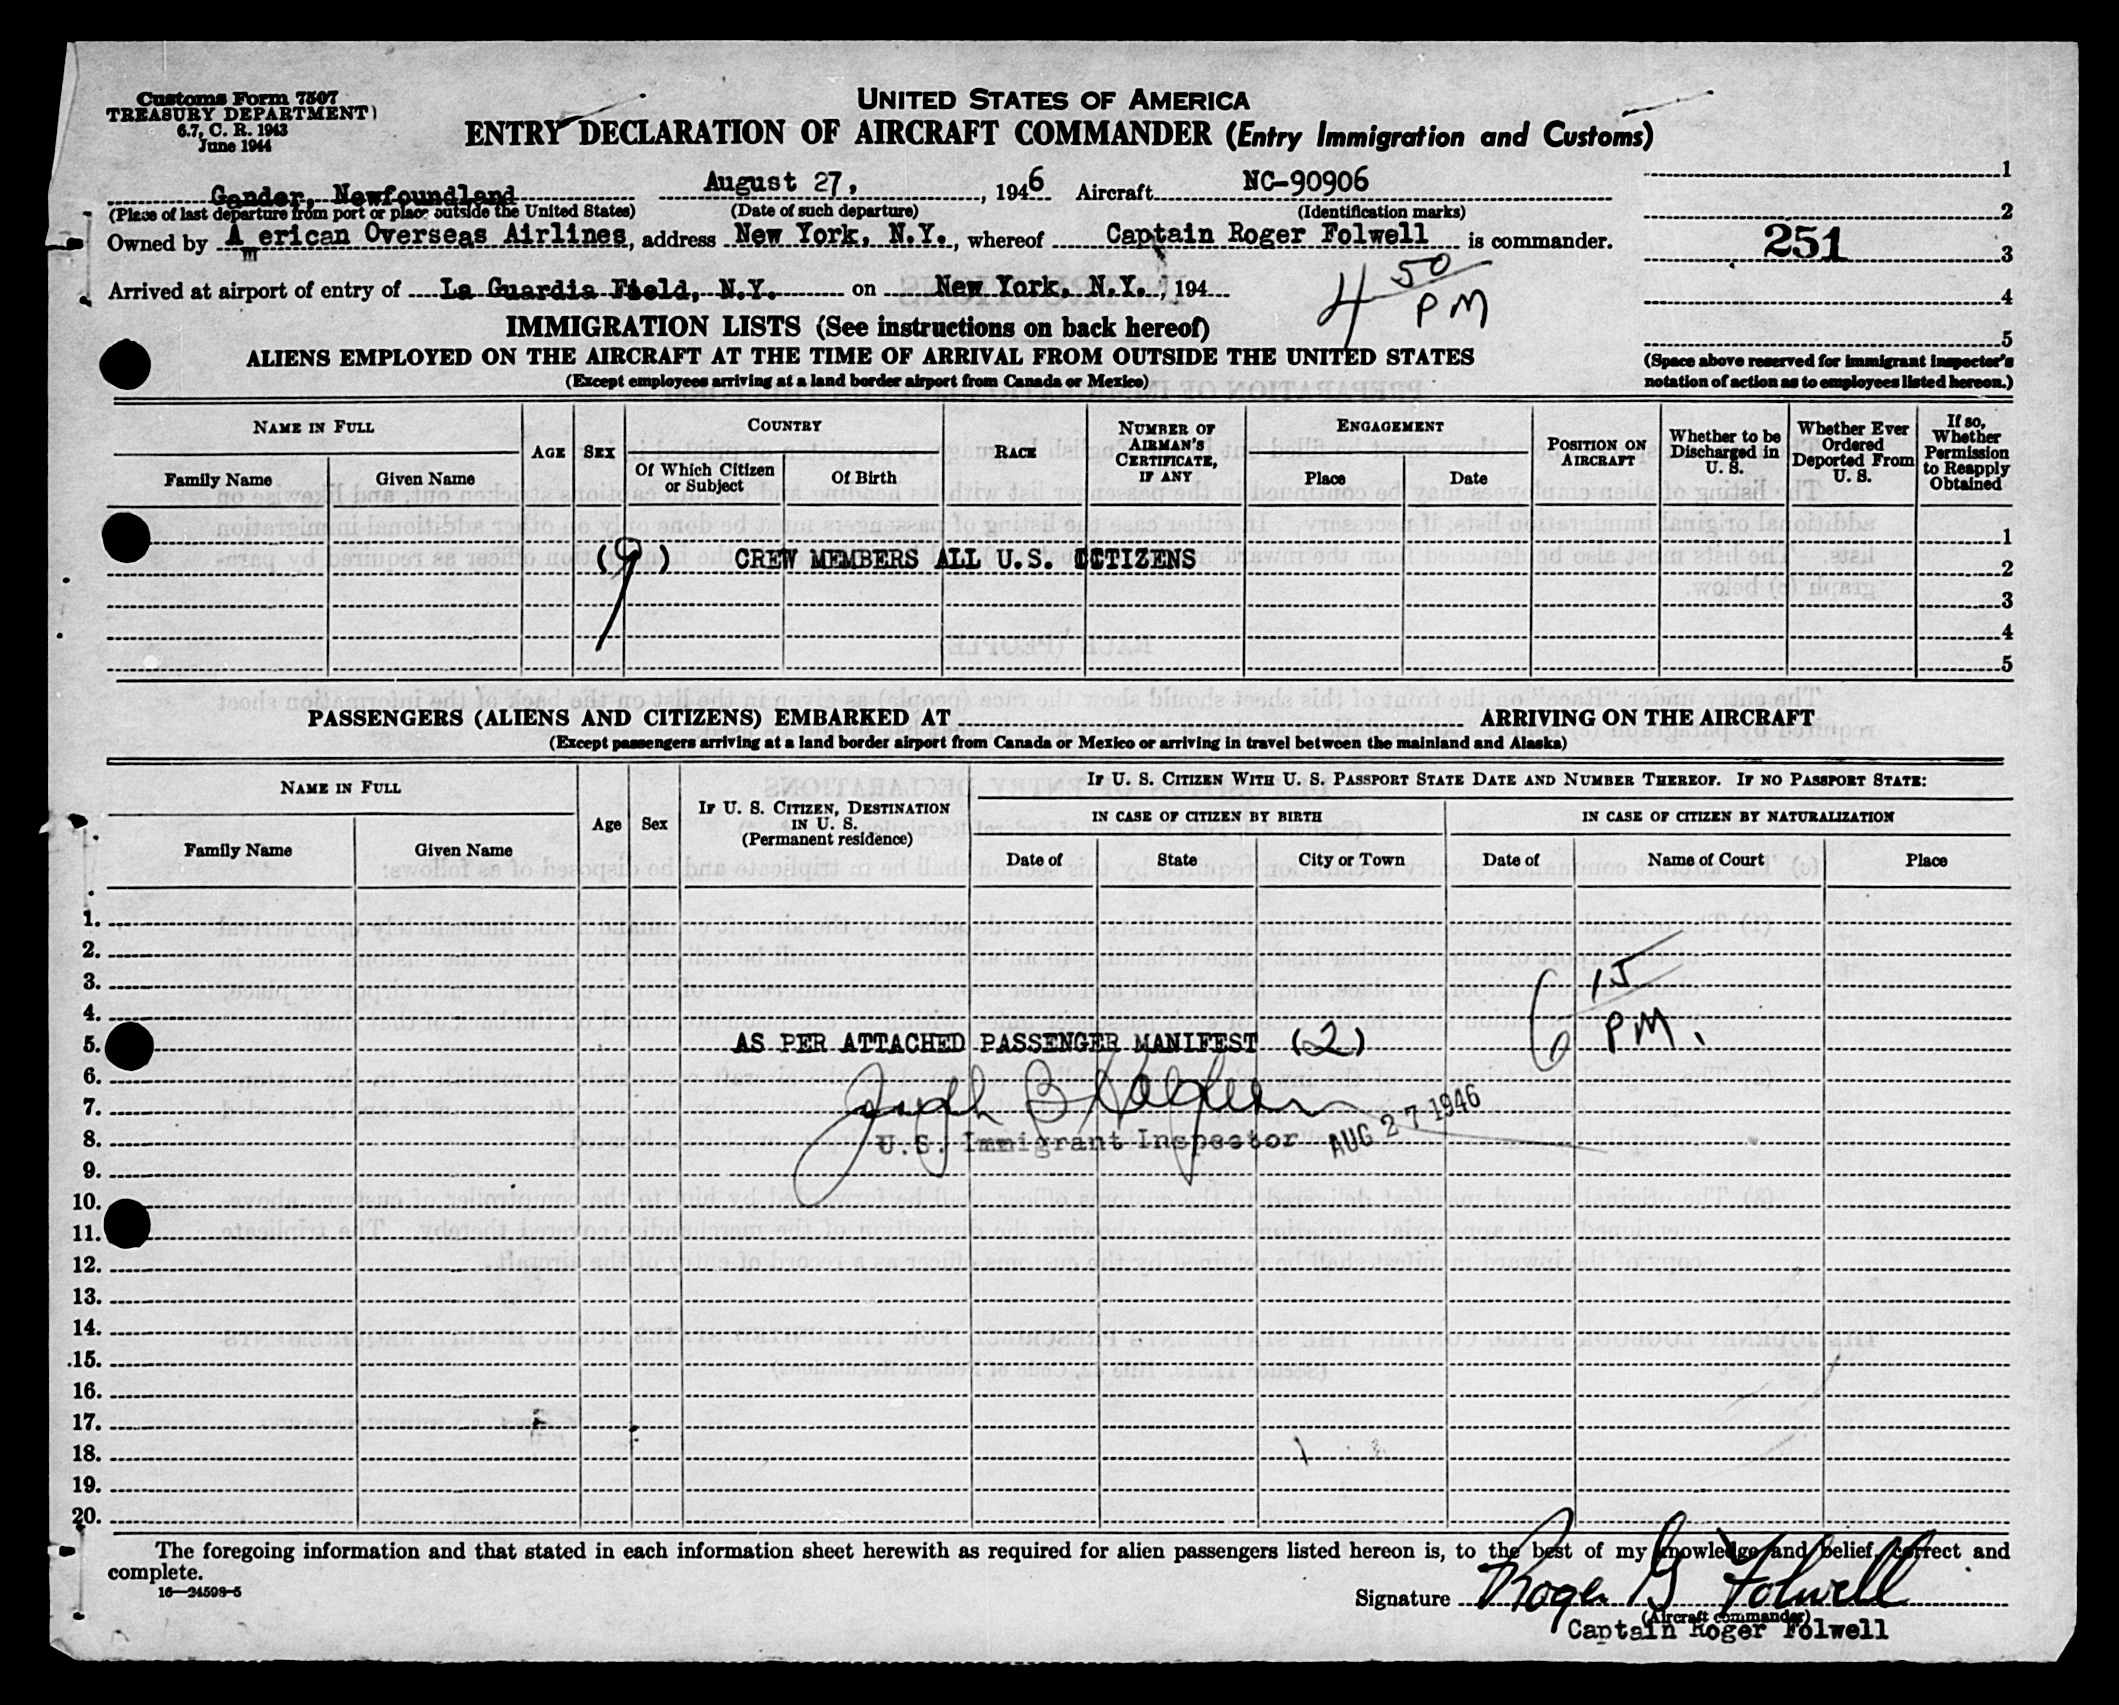 Customs Form 7507
TREASURY DEPARTMENT
6.7, C. R. 1943
June 1944
UNITED STATES OF AMERICA
ENTRY DECLARATION OF AIRCRAFT COMMANDER (Entry Immigration and Customs)
Gander, Newfoundland August 27, , 1946 Aircraft NC-90906
(Place of last departure from port or place outside the United States) (Date of such departure) (Identification marks)
Owned by American Overseas Airlines, address New York, N.Y., whereof Captain Roger Folwell is commander.
Arrived at airport of entry of La Guardia Field, N.Y. on New York, N.Y., 194
4 50 PM
1
2
251
3
4
5
(Space above reserved for immigrant inspector's
notation of action as to employees listed hereon.)
IMMIGRATION LISTS (See instructions on back hereof)
ALIENS EMPLOYED ON THE AIRCRAFT AT THE TIME OF ARRIVAL FROM OUTSIDE THE UNITED STATES
(Except employees arriving at a land border airport from Canada or Mexico)
NAME IN FULL
Family Name
Given Name
AGE
SEX
COUNTRY
Of Which Citizen or Subject
Of Birth
RACE
NUMBER OF AIRMAN'S CERTIFICATE, IF ANY
ENGAGEMENT
Place
Date
POSITION ON AIRCRAFT
Whether to be Discharged in U. S.
Whether Ever Ordered Deported From U. S.
If so, Whether Permission to Reapply Obtained
1
(9) CREW MEMBERS ALL U.S. CITIZENS
2
3
4
5
PASSENGERS (ALIENS AND CITIZENS) EMBARKED AT ARRIVING ON THE AIRCRAFT
(Except passengers arriving at a land border airport from Canada or Mexico or arriving in travel between the mainland and Alaska)
NAME IN FULL
Family Name
Given Name
Age
Sex
IF U. S. CITIZEN, DESTINATION IN U. S.
(Permanent residence)
IF U. S. CITIZEN WITH U. S. PASSPORT STATE DATE AND NUMBER THEREOF. IF NO PASSPORT STATE:
IN CASE OF CITIZEN BY BIRTH
IN CASE OF CITIZEN BY NATURALIZATION
Date of
State
City or Town
Date of
Name of Court
Place
1.
2.
3.
4.
6 15 PM.
5. AS PER ATTACHED PASSENGER MANIFEST (2)
6.
7. Joseph B
8. U.S. Immigrant Inspector AUG 27 1946
9.
10.
11.
12.
13.
14.
15.
16.
17.
18.
19.
20.
The foregoing information and that stated in each information sheet herewith as required for alien passengers listed hereon is, to the best of my knowledge and belief, correct and
complete.
16—24598-5
Signature Roger G Folwell
(Aircraft commander)
Captain Roger Folwell